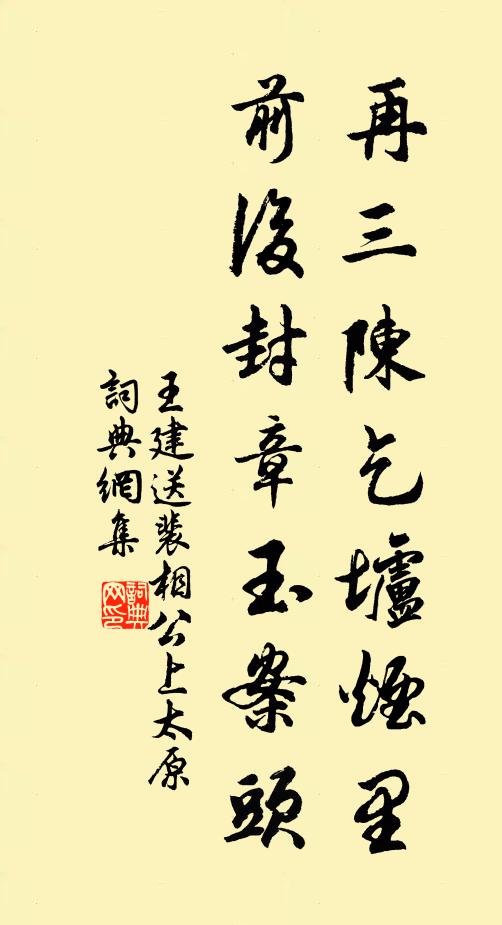 再三陳乞壚煙里
前後封章玉案頭
王建送裴相公上太原
詞典網集
詞典
网印